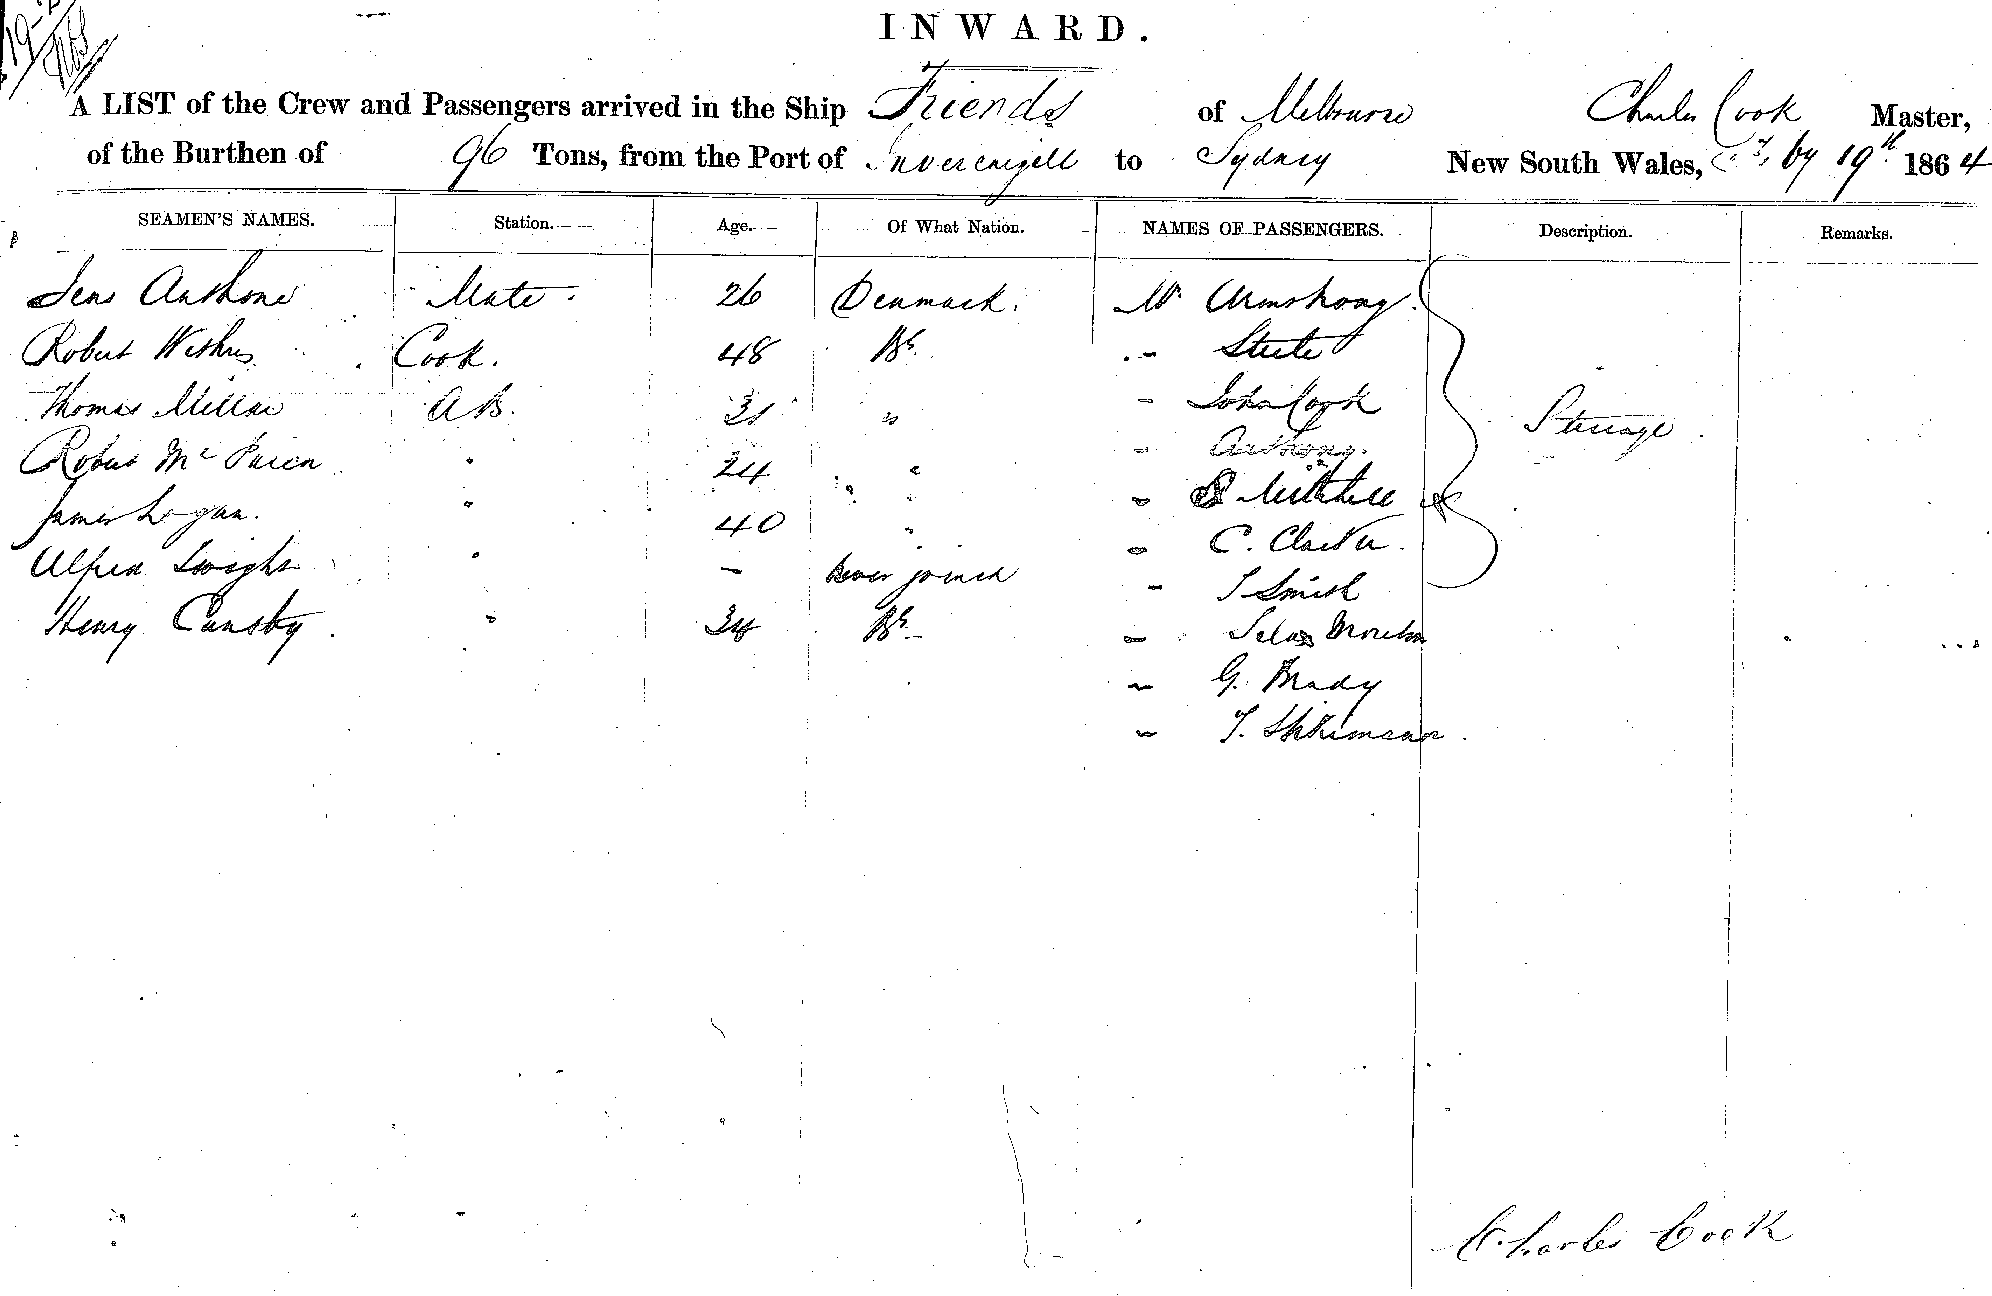 INWARD.
A LIST of the Crew and Passengers arrived in the Ship Friends of Melbourne Charles Cook Master,
of the Burthen of 96 Tons, from the Port of Invercargill to Sydney New South Wales, by 19th 1864
SEAMEN'S NAMES. Station. Age. Of What Nation. NAMES OF PASSENGERS. Description. Remarks.
Jens Mate. 26 Denmark. Mr Armstrong.
Robert Cook. 48 Bh. - Steele
Thomas Millar AB. 31 " - John Cook Steerage
Robert Mc " 24 " - Anthony.
James Logan. " 40 " - Mitchell
Alfred Dwight " - never joined - C. Clark
Henry " 34 Bh - T Smith
- Silas Morton
- G. Mady
- T.
Charles Cook